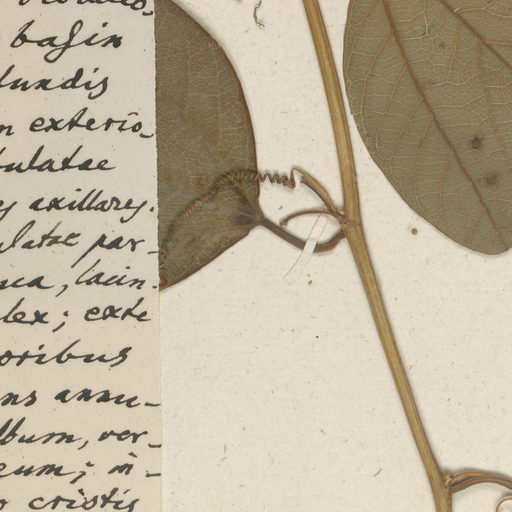 basin
undis
n exterio-
ulatae
s axillares.
ulatae par-
ua, lacin.
lex; exte
oribus
ns annu-
lbum, ver-
eum; in-
cristis